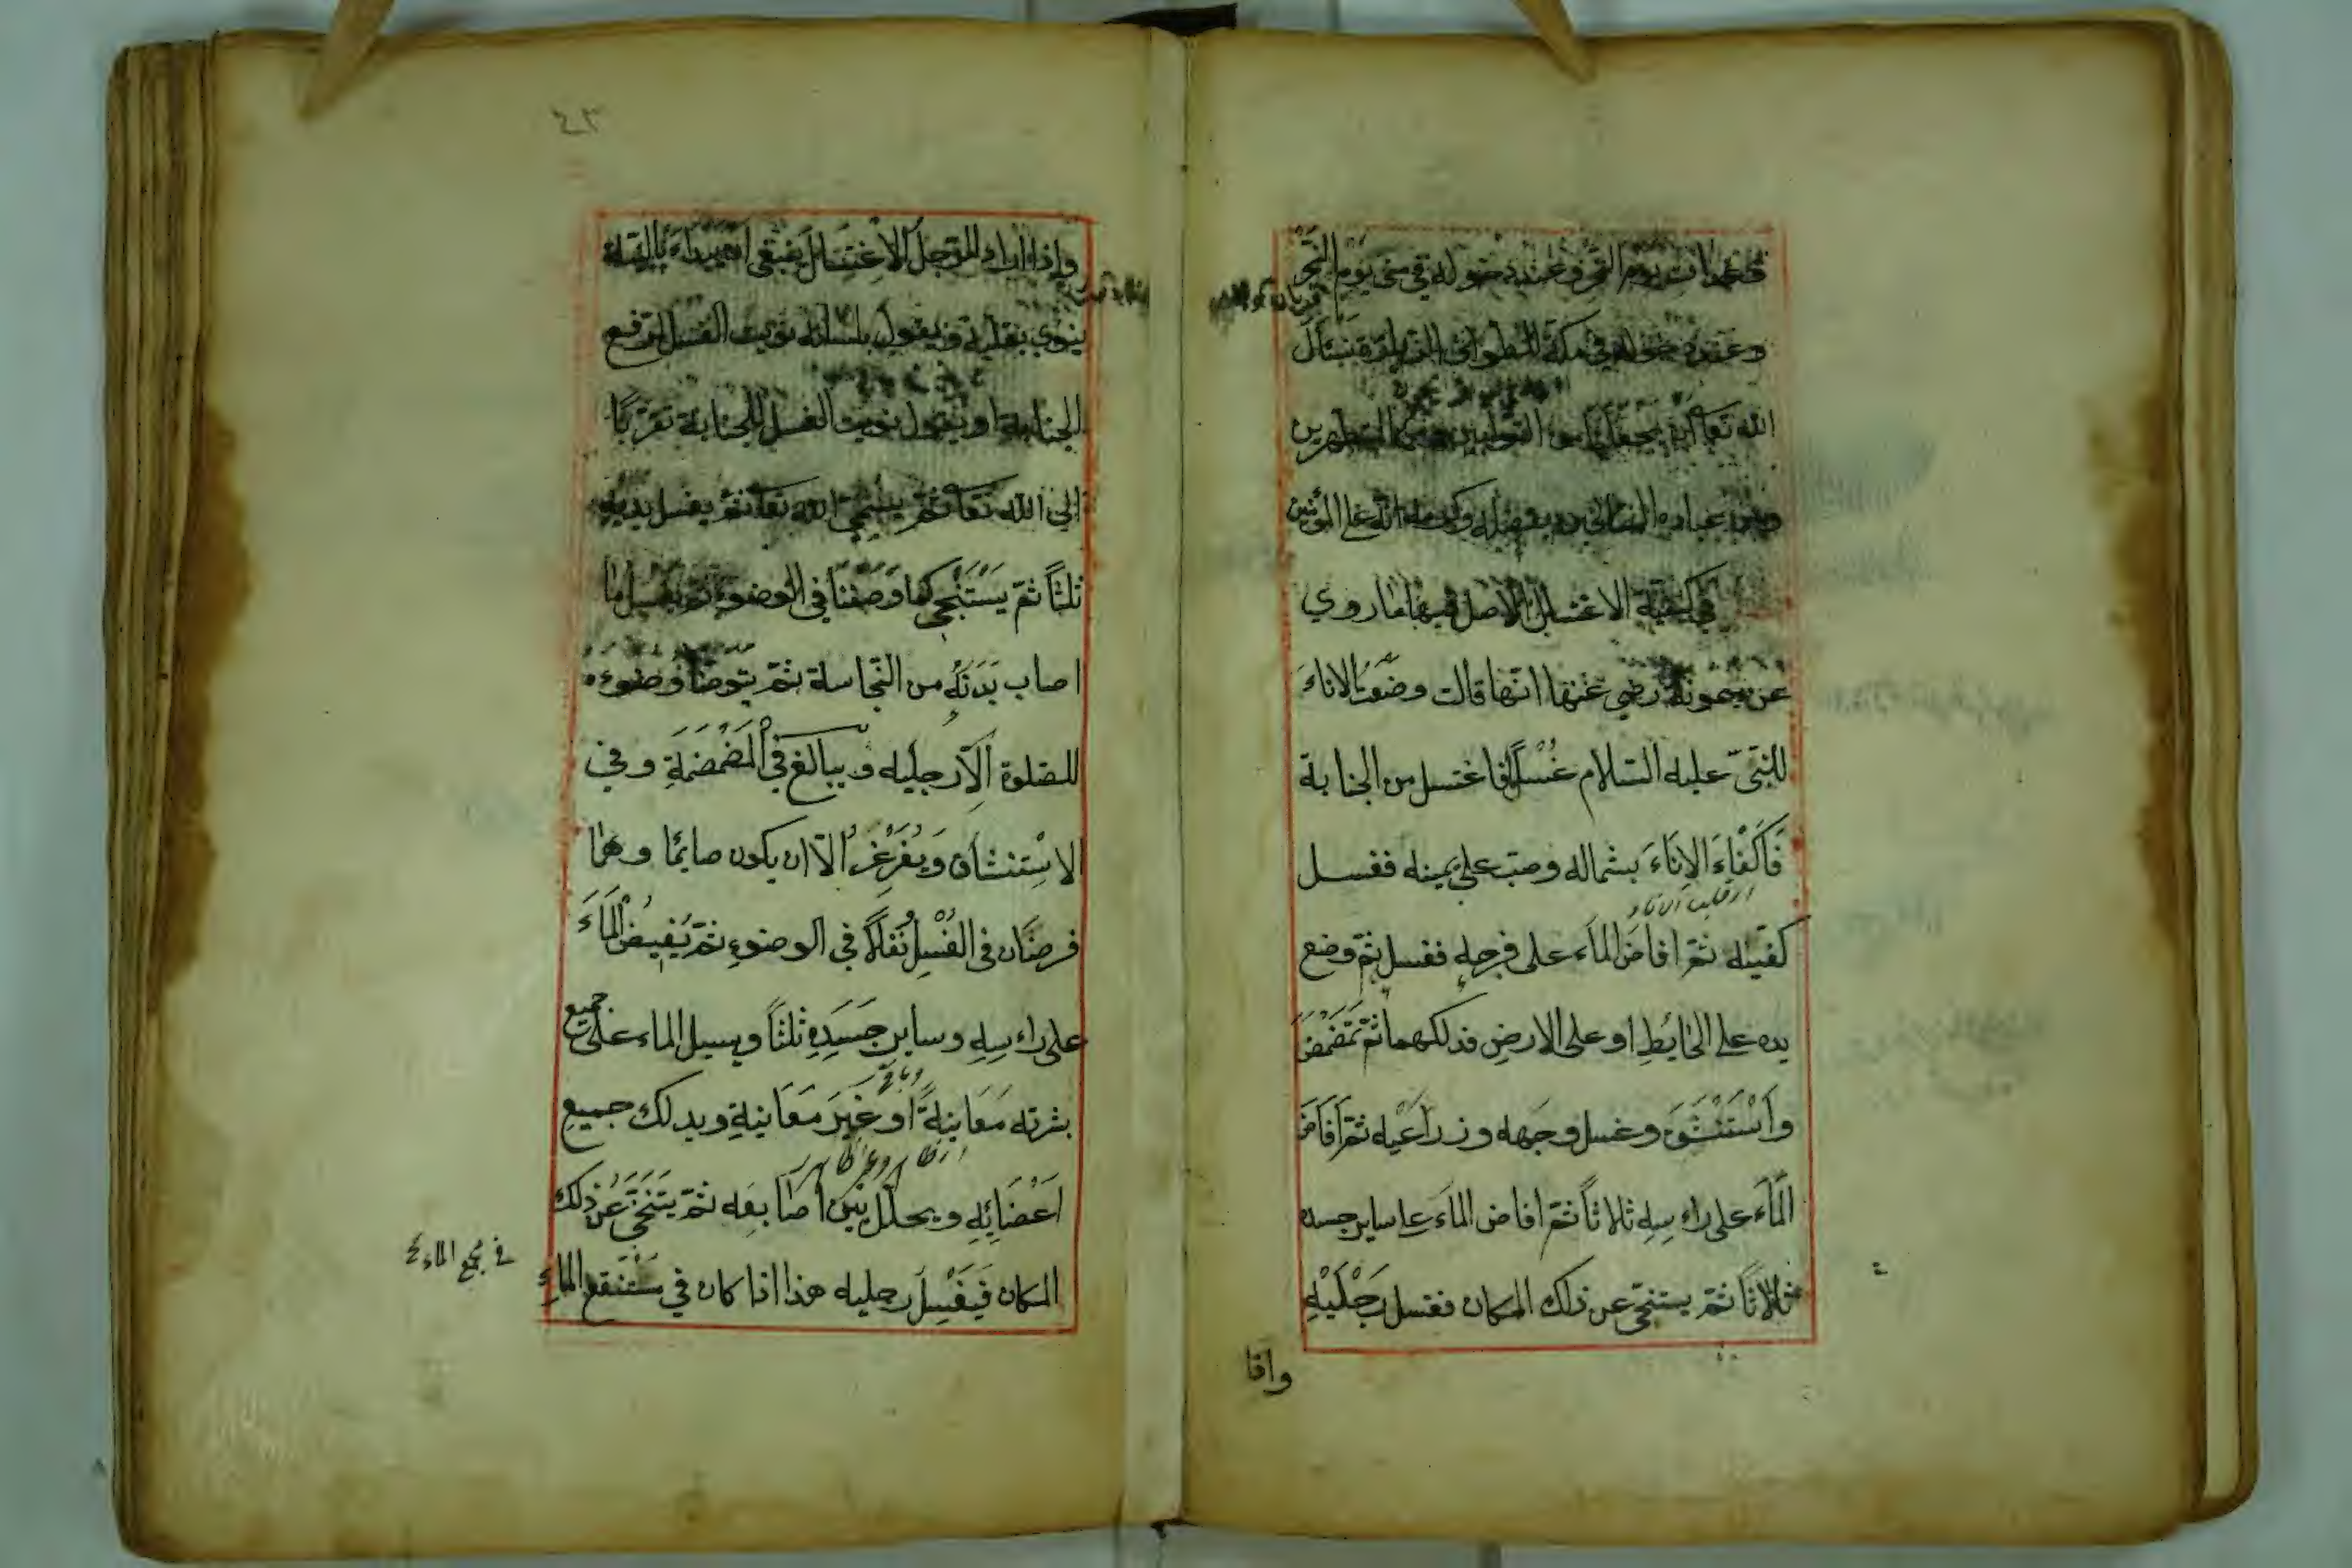 يوم النحر وعند دخوله في منى يوم النحر
وعند دخوله في مكة للطواف فنسأل
الله تعا ان يجعلنا من التوابين ومن المتطهرين
ومن عباده الصالحين بفضله وكرمه
في كيفية الاغتسال الاصل فيها ما روي
عن ميمونة رضي عنها انها قالت وضعت الاناء
للنبي عليه السلام غسلا فاغتسل من الجنابة
فاكفاء الاناء بشماله وصب على يمينه فغسل
كفيه ثم افاض الماء على فرجه فغسل ثم وضع
يده على الحايط او على الارض فدلكهما ثم تمضمض
واستنشق وغسل وجهه وذراعيه ثم افاض
الماء على راءسه ثلاثا ثم افاض الماء على ساير جسده
ثلاثا ثم يستنحى عن ذلك المكان فغسل رجليه
٤٣
واذا اراد الرجل الاغتسال ينبغي
ينوي بقلبه ويقول بلسانه نويت الغسل لرفع
الجنابة او يقول نويت الغسل للجنابة تقربا
الى الله تعا ثم يسمي الله تعا ثم يغسل يديه
ثلثا ثم يستنجي كما وصفنا في الوضوء ثم يغسل ما
اصاب بدنه من النجاسة ثم يتوضا وضوءه
للصلوة الا رجليه ويبالغ في المضمضة وفي
الاستنشاق ويغرغر الا ان يكون صايما وهما
فرضان في الغسل نفلا في الوضوء ثم يفيض الماء
على راءسه وساير جسده ثلثا ويسيل الماء على جميع
بشرته معاينة او غير معاينة ويدلك جميع
اعضائه ويخلل بين اصابعه ثم يتنحى عن ذلك
المكان فيغسل رجليه هذا اذا كان في مستنقع الماء
في مجمع الماء